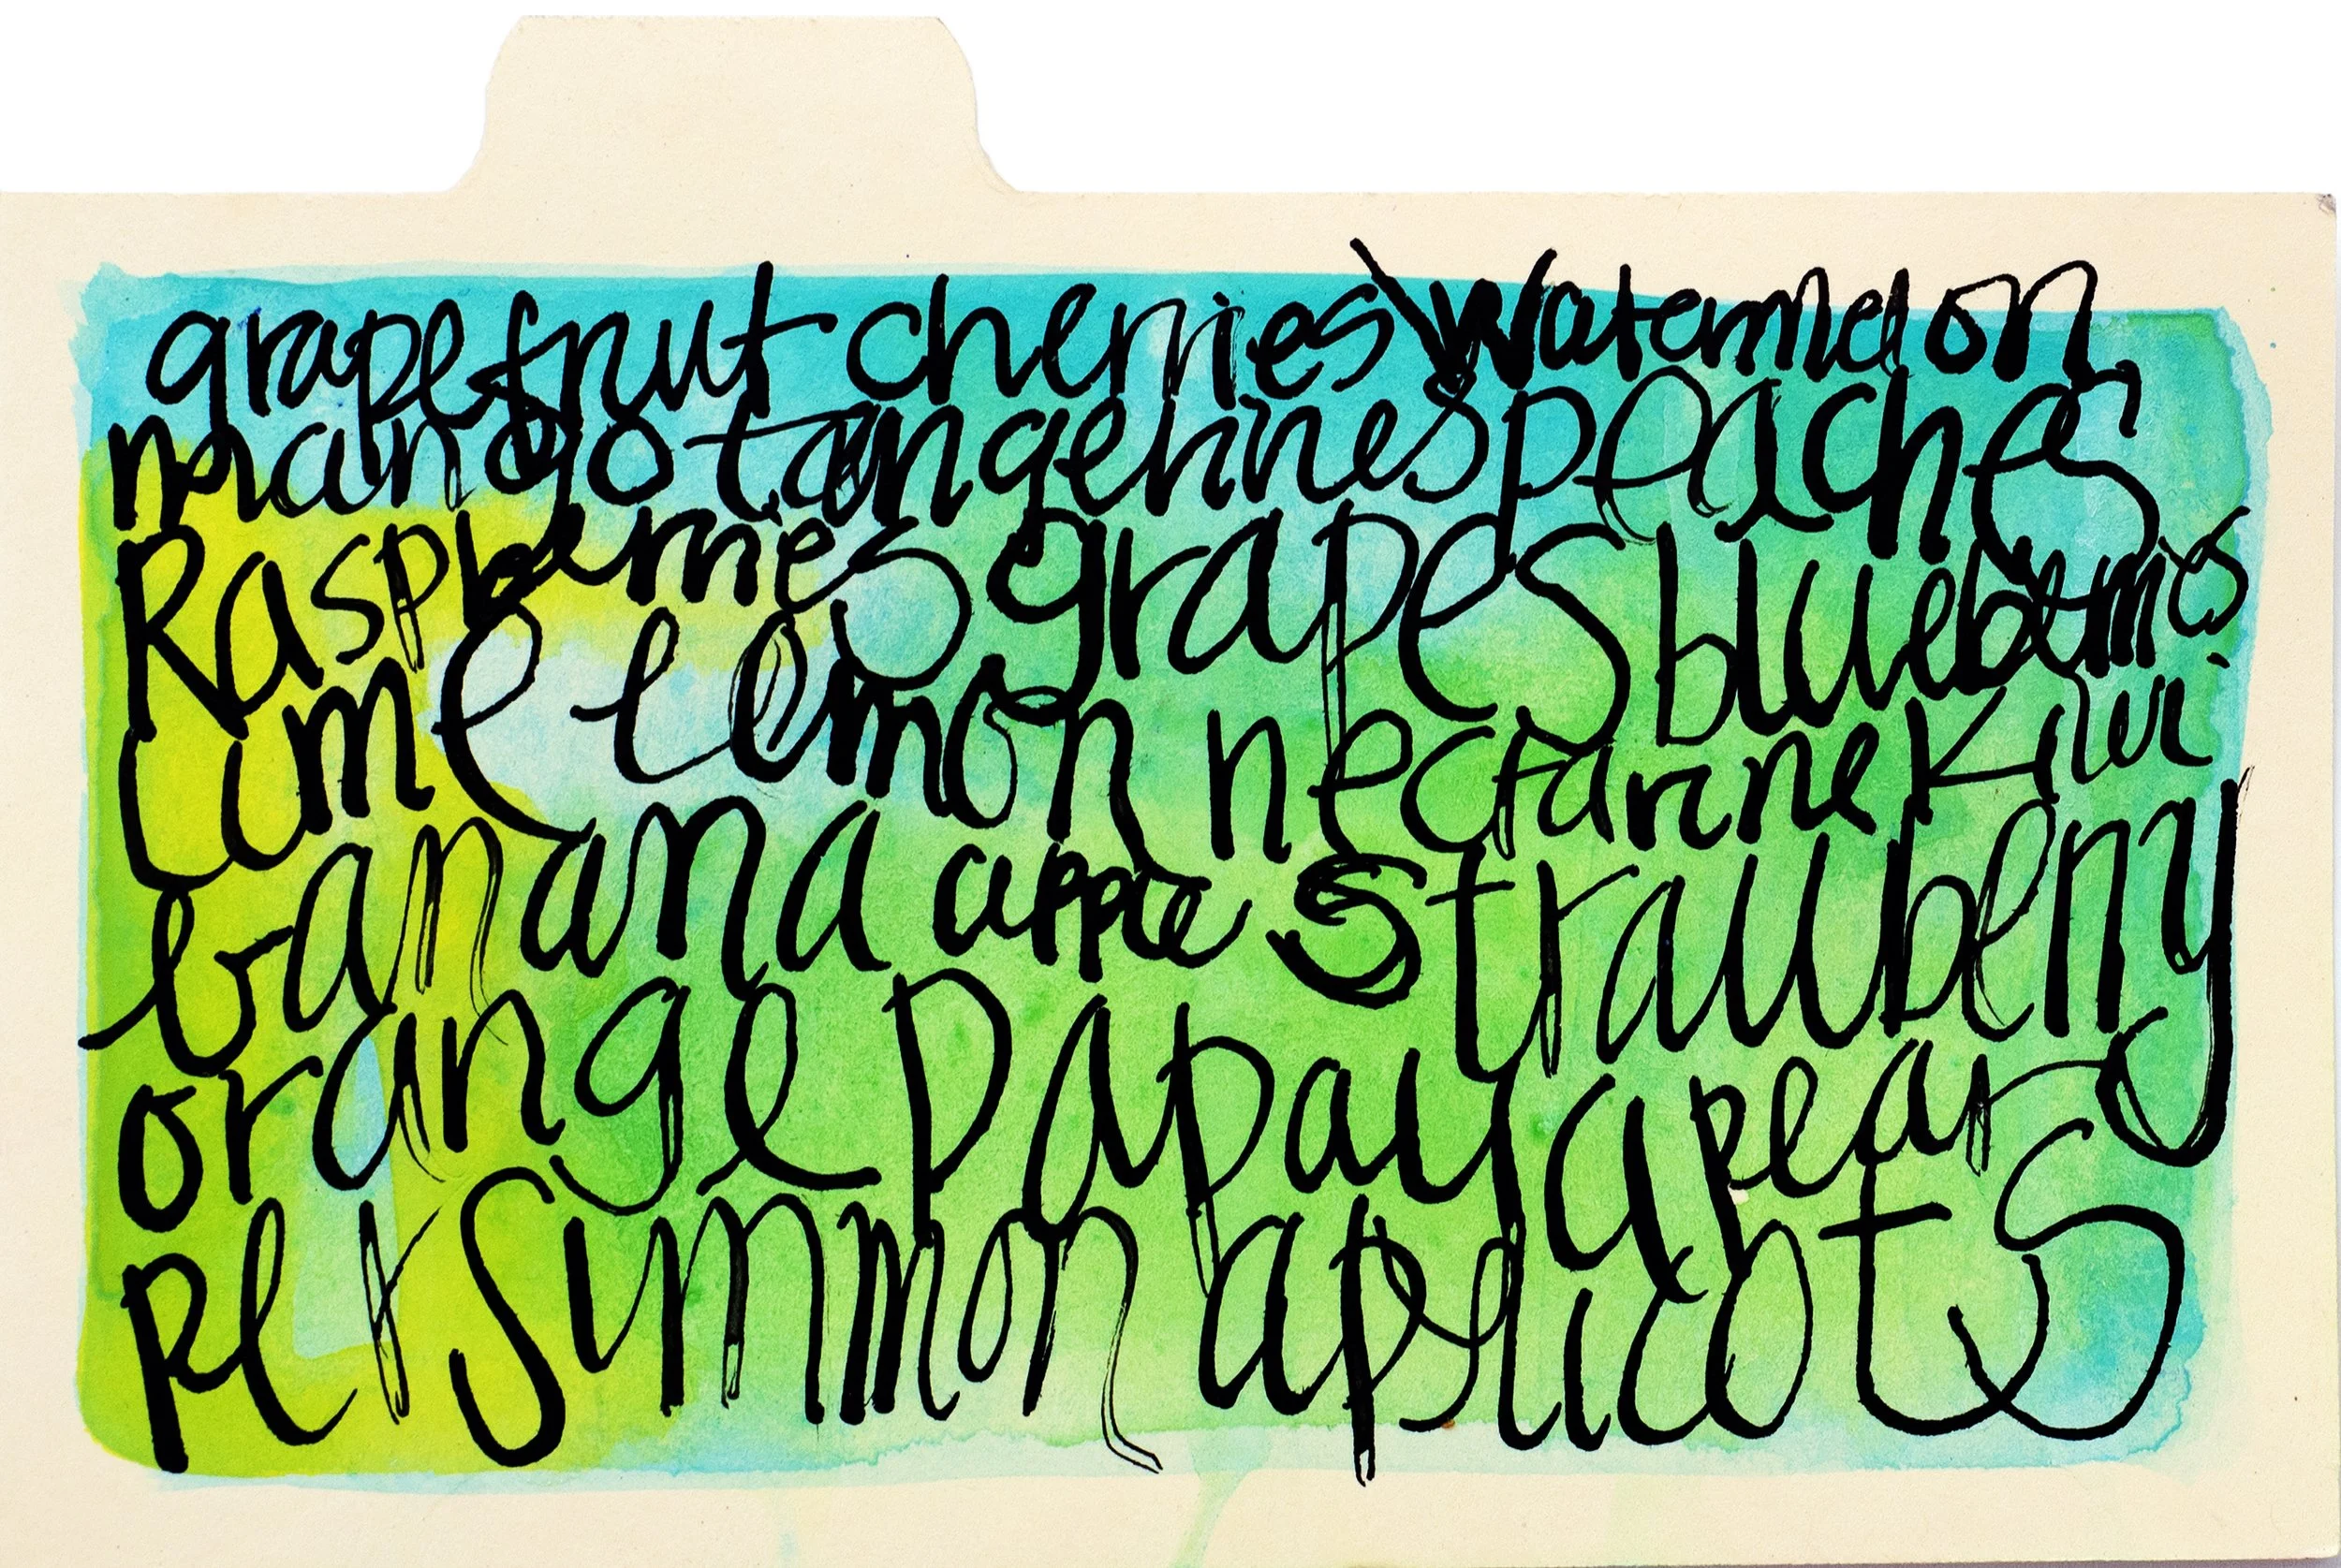 grapefruit cherries Watermelon
mango tangerines peaches
Raspberries grapes blueberries
Lime lemon nectarine Kiwi
banana apple Strawberry
orange Papaya pear
persimmon apricots